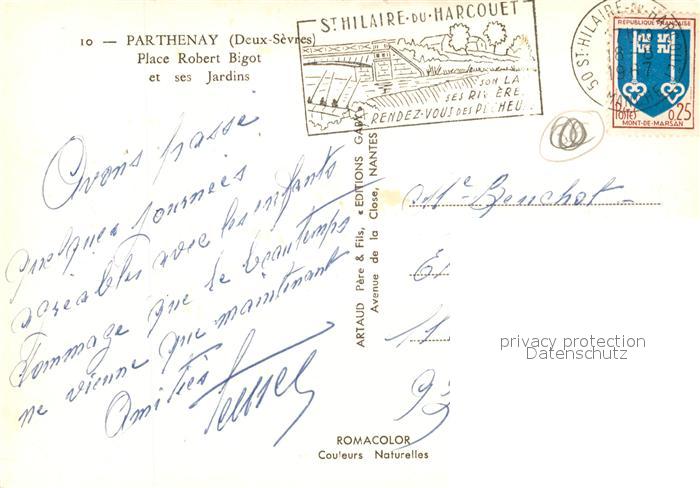 10 — PARTHENAY (Deux-Sèvres)
Place Robert Bigot
et ses Jardins
St HILAIRE-DU-HARCOUET
SON LA
SES RIVIÈRE
RENDEZ-VOUS DES PÊCHEU
50 ST-HILAIRE-DU-H
18
1967
MANCHE
REPUBLIQUE FRANÇAISE
POSTES 0,25
MONT-DE-MARSAN
Avons passé
quelques journées
agréables avec les enfants
Dommage que le beau temps
ne vienne que maintenant
Amitiés
ARTAUD Père & Fils, « EDITIONS GABY »
Avenue de la Close, NANTES
Me Benchot
11
ROMACOLOR
Couleurs Naturelles
privacy protection
Datenschutz